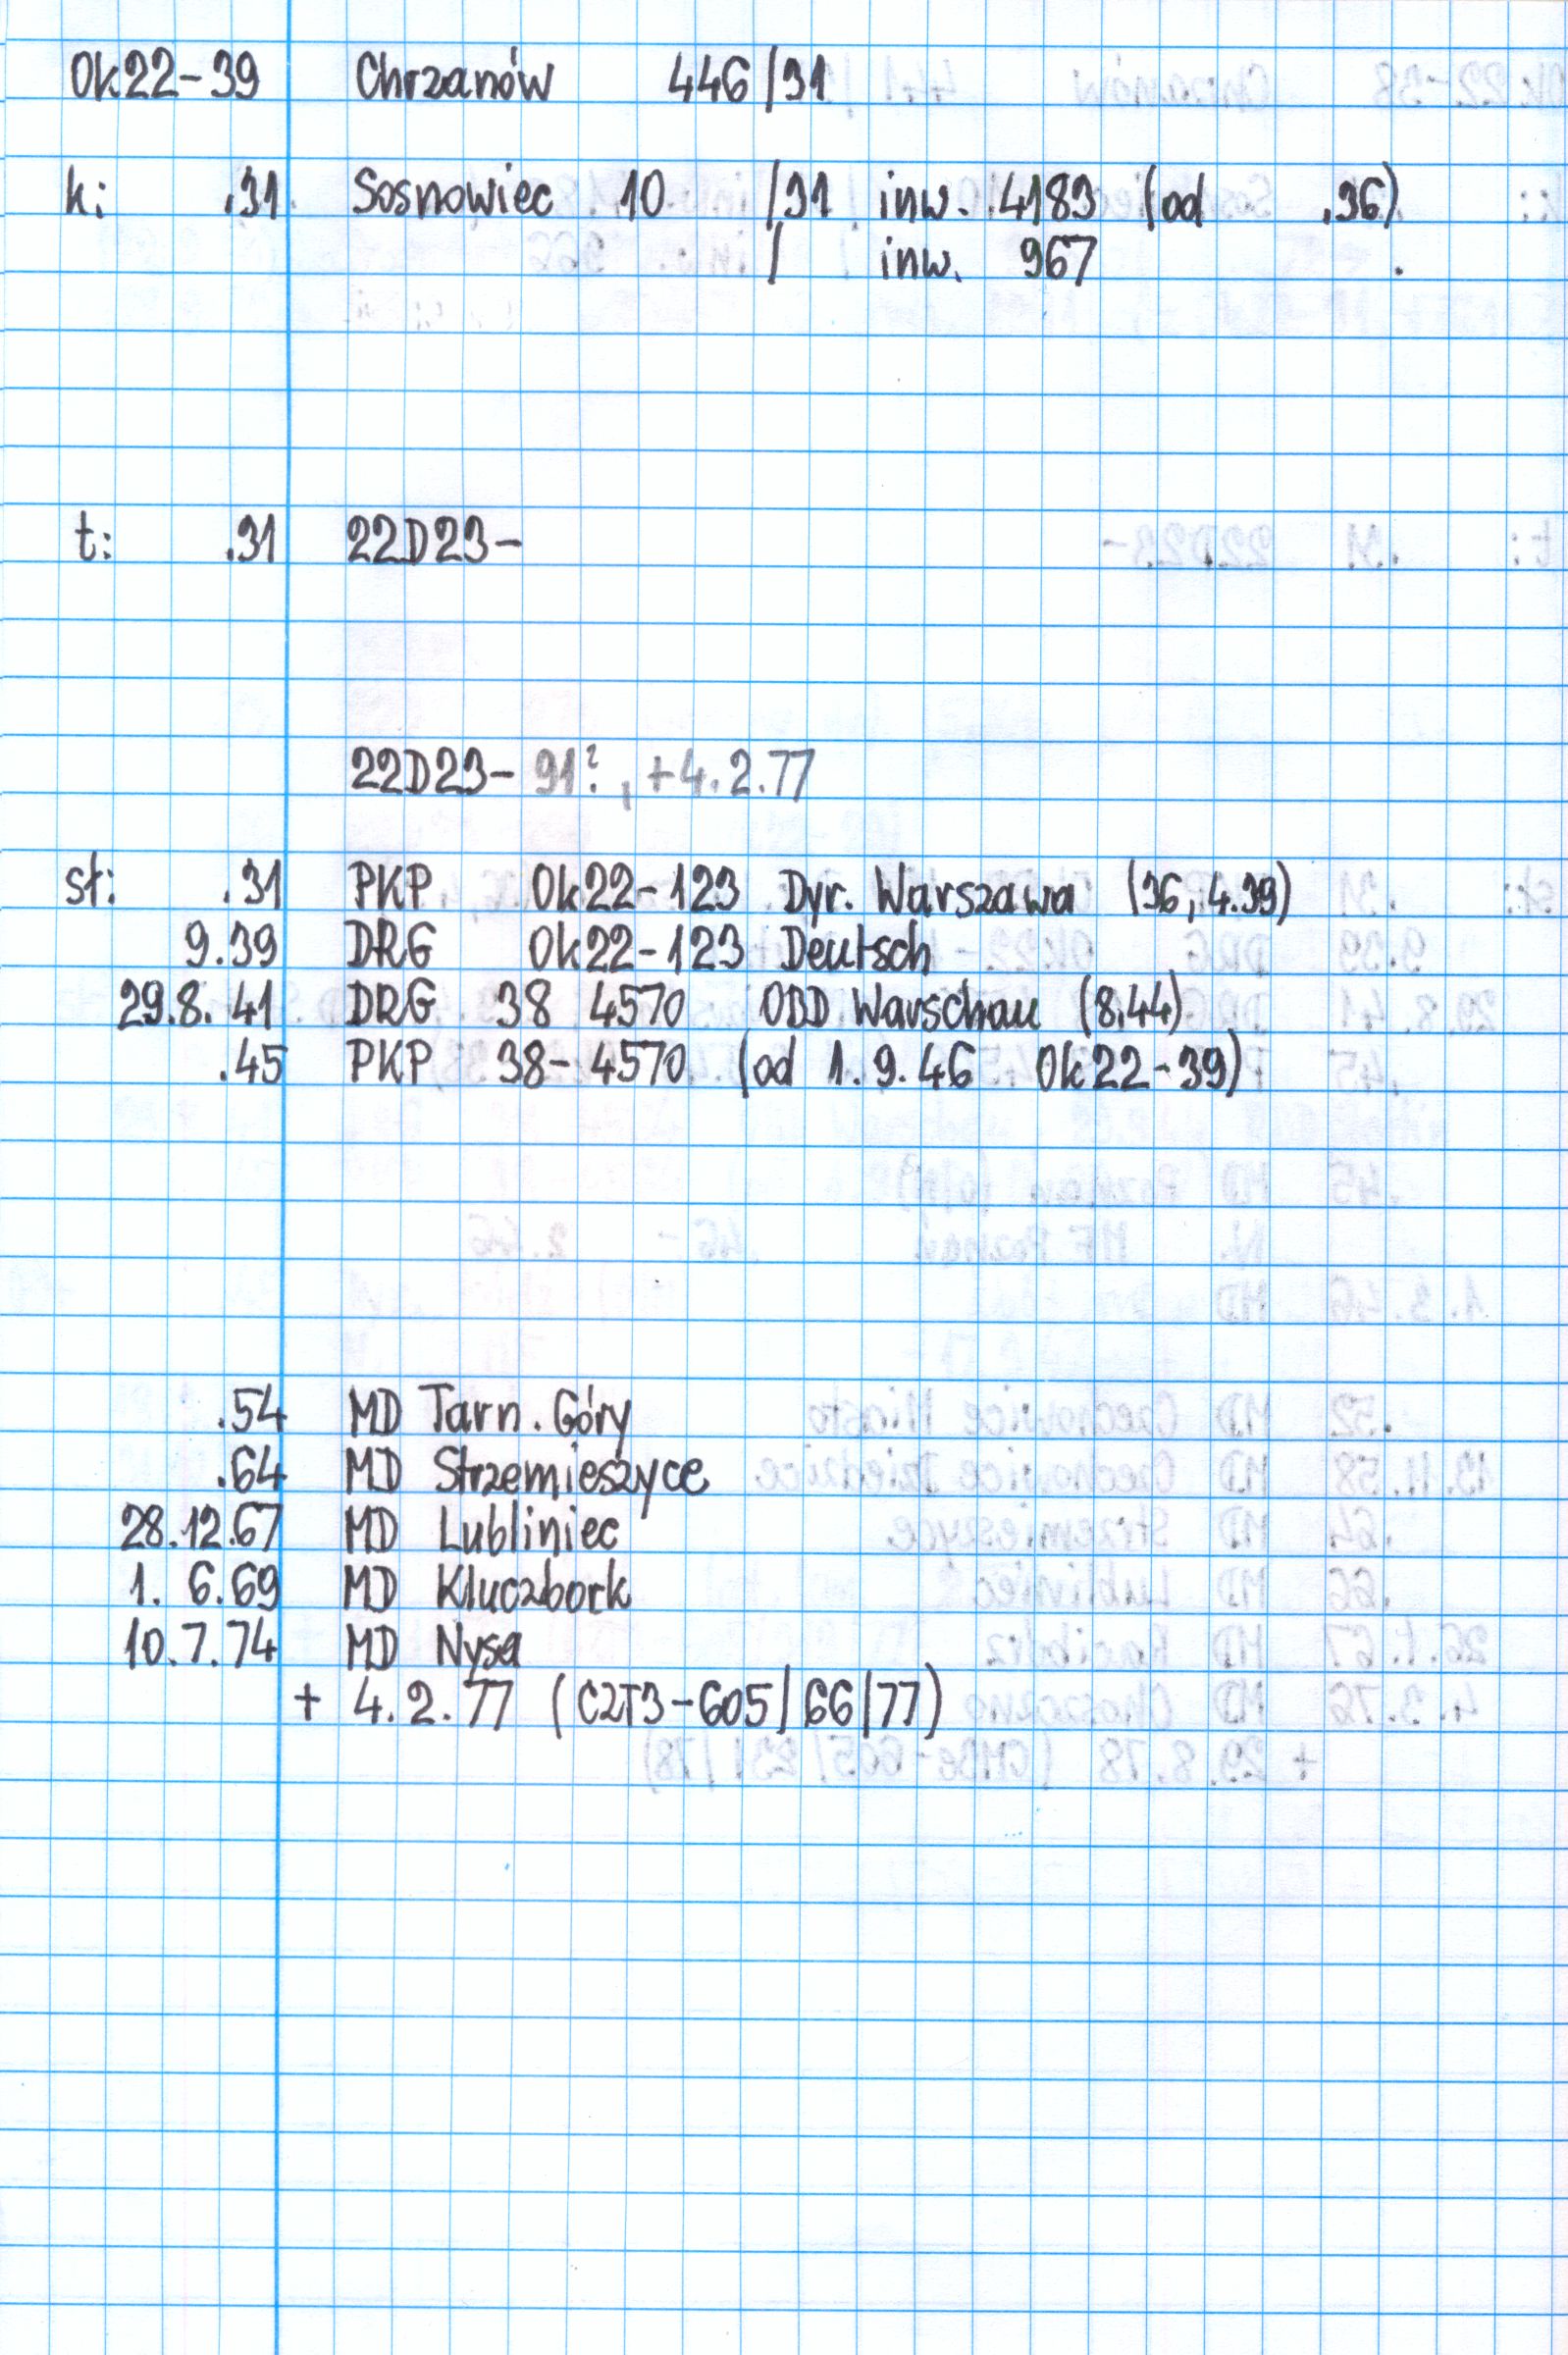 Ok22-39 Chrzanów 446/31
k: .31 Sosnowiec 10 /31 inw. 4183 (od .36)
/ inw. 967 .
t: .31 22D23-
22D23- 91?, +4.2.77
sł: .31 PKP Ok22-123 Dyr. Warszawa (36, 4.39)
9.39 DRG Ok22-123 Deutsch
29.8.41 DRG 38 4570 OBD Warschau (8.44)
.45 PKP 38-4570 (od 1.9.46 Ok22-39)
.54 MD Tarn. Góry
.64 MD Strzemieszyce
28.12.67 MD Lubliniec
1. 6.69 MD Kluczbork
10.7.74 MD Nysa
+ 4.2.77 (C2T3-605/66/77)